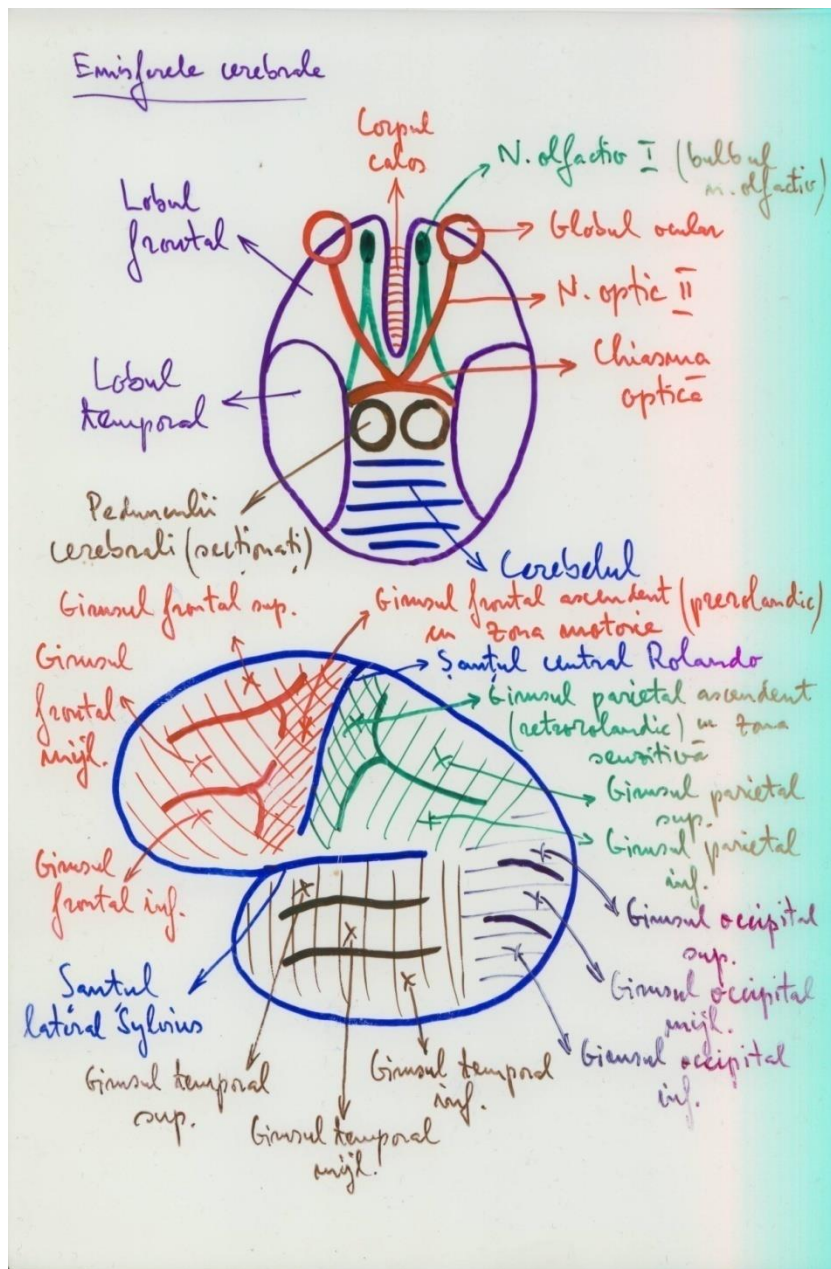 Emisferele cerebrale
Corpul
calos
N. olfactiv I (bulbul
n. olfactiv)
Lobul
frontal
Globul ocular
N. optic II
Chiasma
optică
Lobul
temporal
Pedunculii
cerebrali (secționați)
Cerebelul
Girusul frontal sup.
Girusul frontal ascendent (prerolandic)
cu zona motorie
Girusul
frontal
mijl.
Șanțul central Rolando
Girusul parietal ascendent
(retrorolandic) cu zona
senzitivă
Girusul parietal
sup.
Girusul parietal
inf.
Girusul
frontal inf.
Girusul occipital
sup.
Girusul occipital
mijl.
Girusul occipital
inf.
Șanțul
lateral Sylvius
Girusul temporal
sup.
Girusul temporal
mijl.
Girusul temporal
inf.